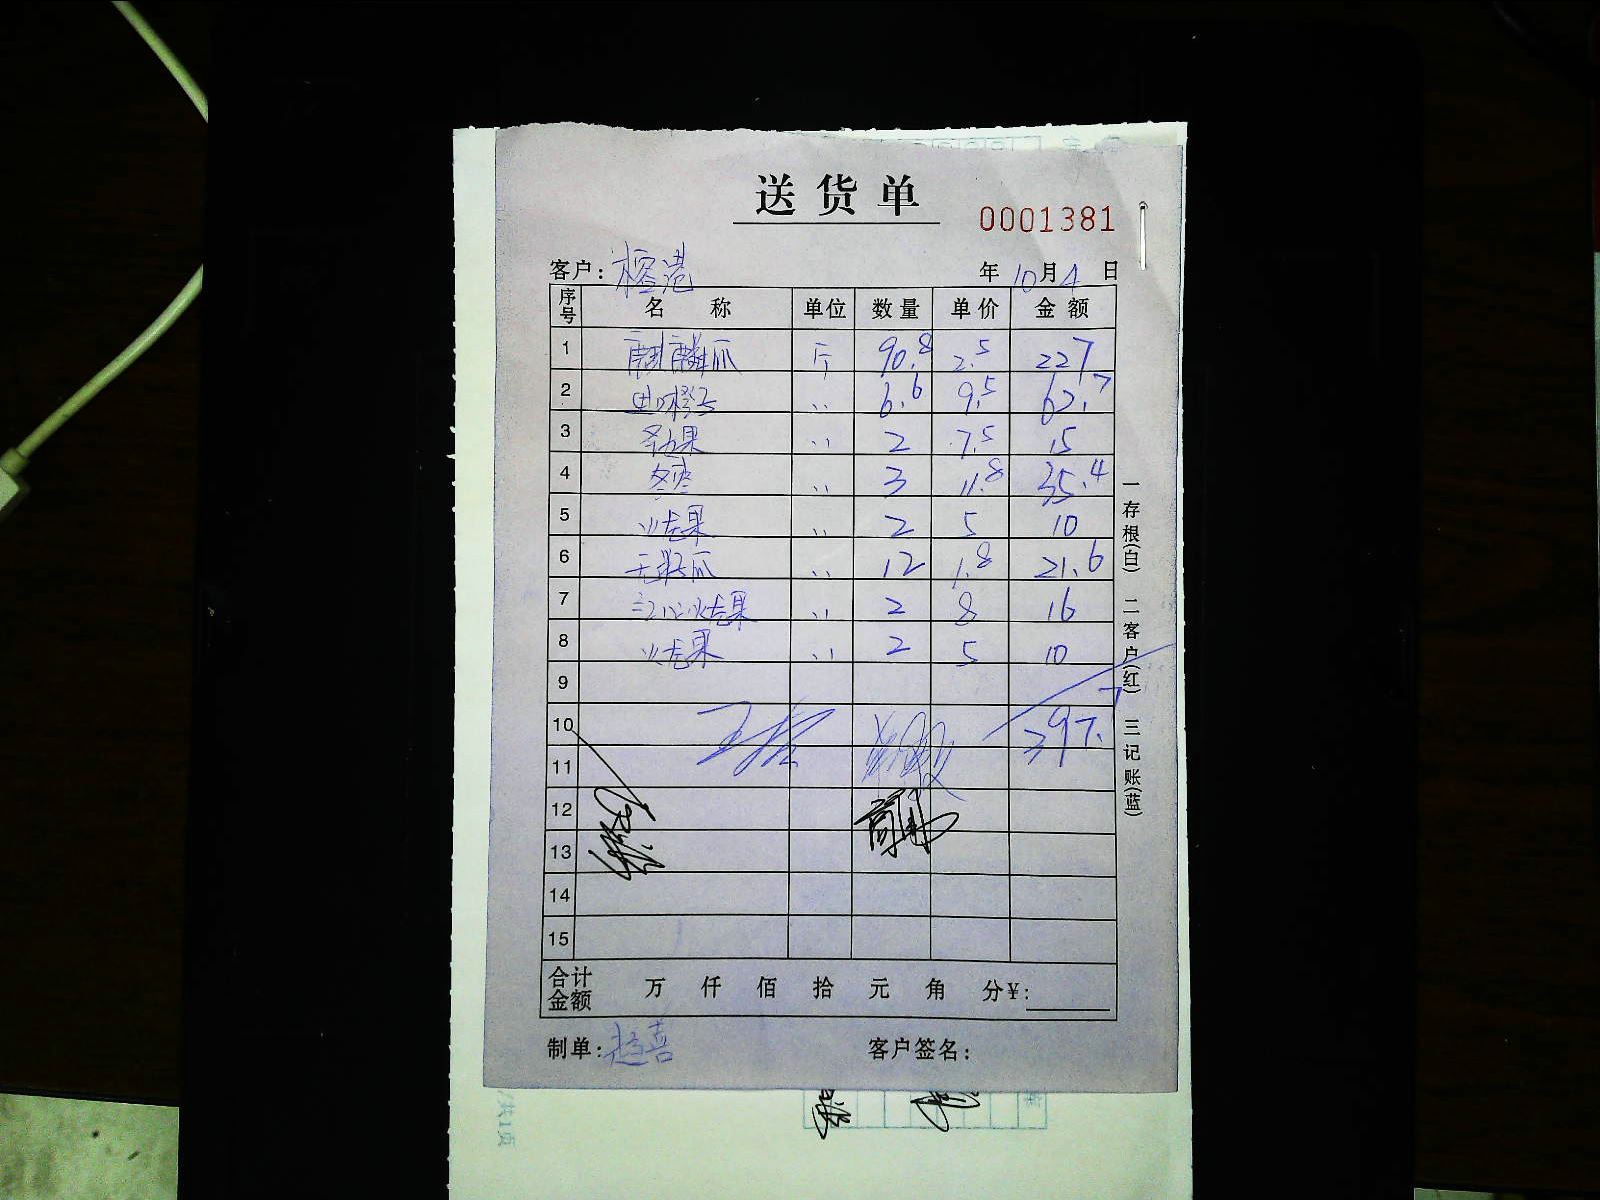 送货单
0001381
客户: 榕港 年 10 月 4 日
序号 名称 单位 数量 单价 金额
1 麒麟瓜 斤 90.8 2.5 227
2 橙子 〃 6.6 9.5 62.7
3 圣女果 〃 2 7.5 15
4 冬枣 〃 3 11.8 35.4
5 火龙果 〃 2 5 10
6 无籽瓜 〃 12 1.8 21.6
7 红心火龙果 〃 2 8 16
8 火龙果 〃 2 5 10
9
10 397.7
11
12
13
14
15
合计金额 万 仟 佰 拾 元 角 分¥:
制单: 赵喜 客户签名:
一存根(白) 二客户(红) 三记账(蓝)
/共1页